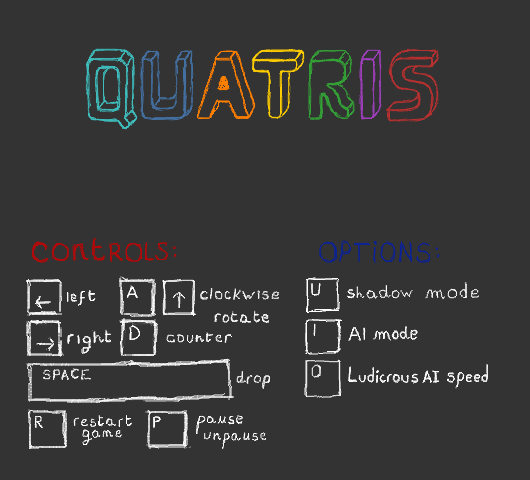 QUATRIS
CONTROLS:
← left A ↑ clockwise
rotate
→ right D counter
SPACE drop
R restart
game
P pause
unpause
OPTIONS:
U shadow mode
I AI mode
O Ludicrous AI speed